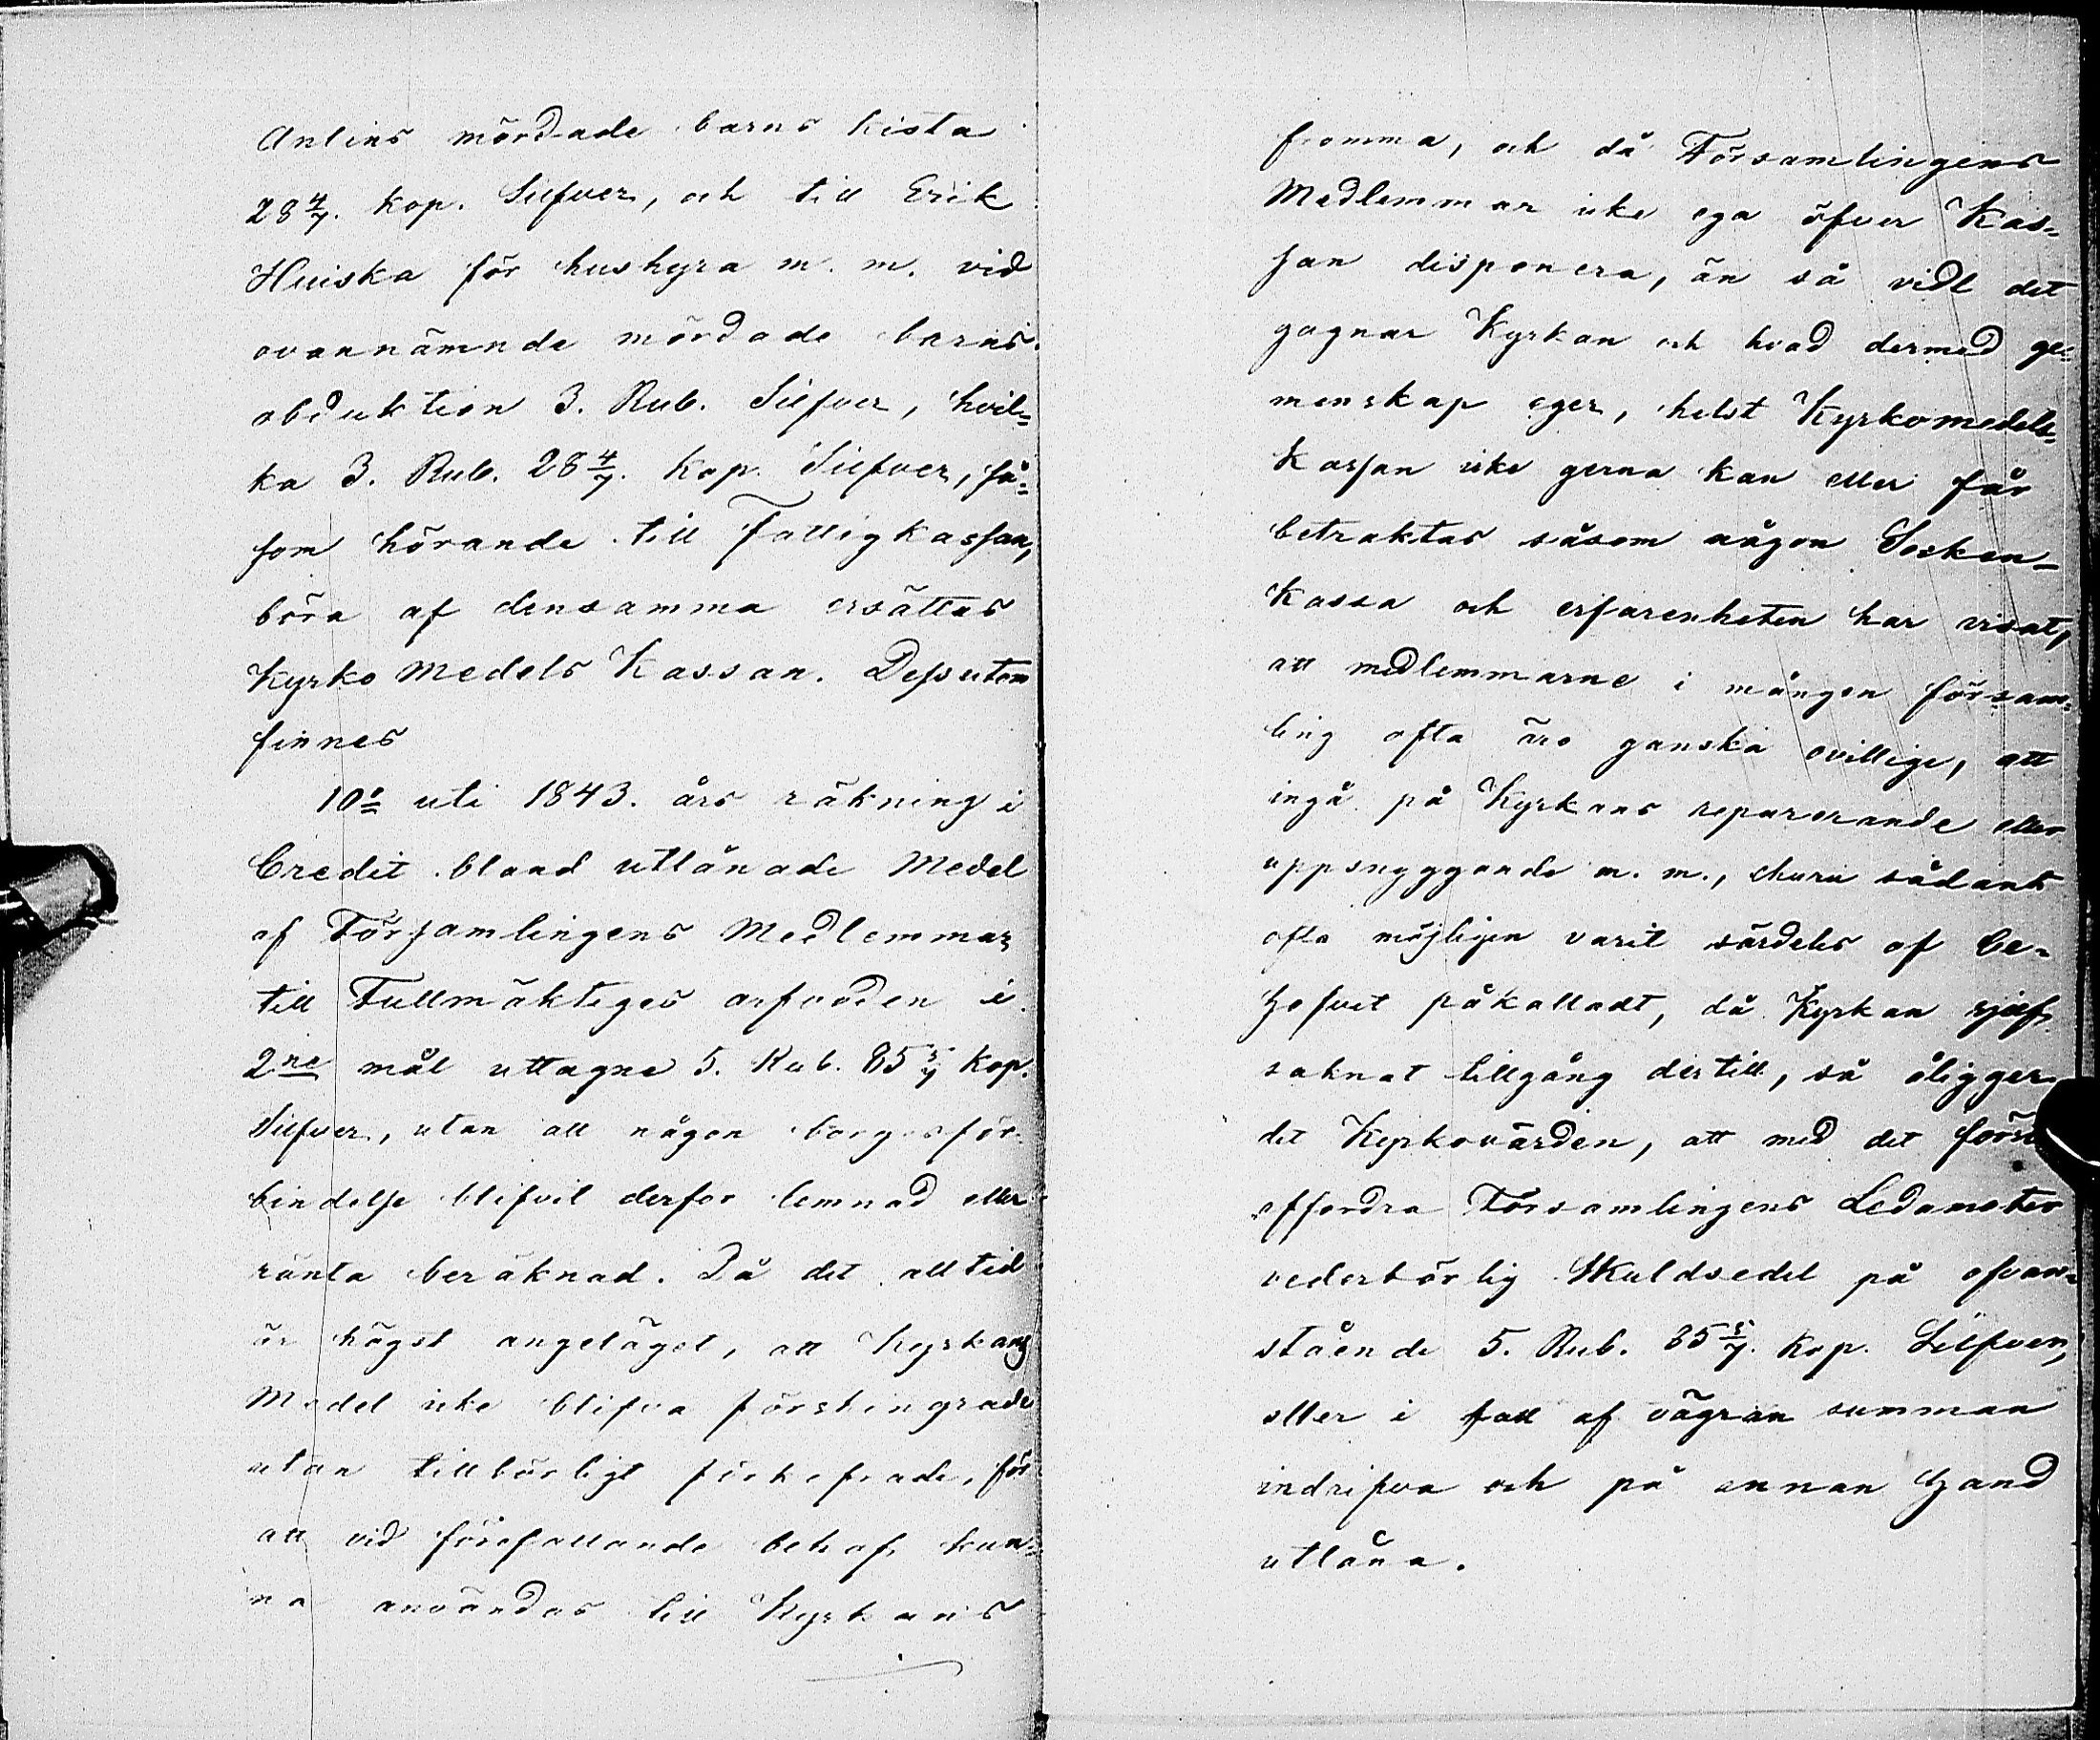 Antins mördade barns kista
28 4/7. kop. Silfver, och till Erik
Huiska för hushyra m. m. vid
ovannämnde mördade barns
obduktion 3. Rub. Silfver, hvil=
ka 3. Rub. 28 4/7. kop. Silfver, så=
som hörande till Fattigkassan,
böra af densamma ersättas
Kyrko Medels Kassan. Dessutom
finnes
10o uti 1843. års räkning i
Credit bland utlånade Medel
af Församlingens Medlemmar
till Fullmäktiges arfvoden i
2ne mål uttagne 5. Rub. 85 5/7 kop.
Silfver, utan att någon borgesför-
bindelse blifvit derför lemnad eller
ränta beräknad. Då det alltid
är högst angeläget, att Kyrkans
Medel icke blifva förskingrade
utan tillbörligt förkofrade, för
att vid förefallande behof kun=
na användas till Kyrkans
fromma, och då Församlingens
Medlemmar icke ega öfver Kas=
san disponera, än så vidt det
gagnar Kyrkan och hvad dermed ge=
menskap eger, helst Kyrkomedels=
kassan icke gerna kan eller får
betraktas såsom någon Socken-
kassa och erfarenheten har visat,
att medlemmarne i mången försam=
ling ofta äro ganska ovillige, att
ingå på Kyrkans reparerande eller
uppsnyggande m. m., churu sådant
ofta möjligen varit särdeles af be=
hofvet påkalladt, då Kyrkan sjelf
saknat tillgång dertill, så åligger
det Kyrkovärden, att med det första
affordra Församlingens Ledamöter
vederbörlig Skuldsedel på ofvan=
stående 5. Rub. 85 5/7. kop. Silfver,
eller i fall af vägran summan
indrifva och på annan hand
utlåna.